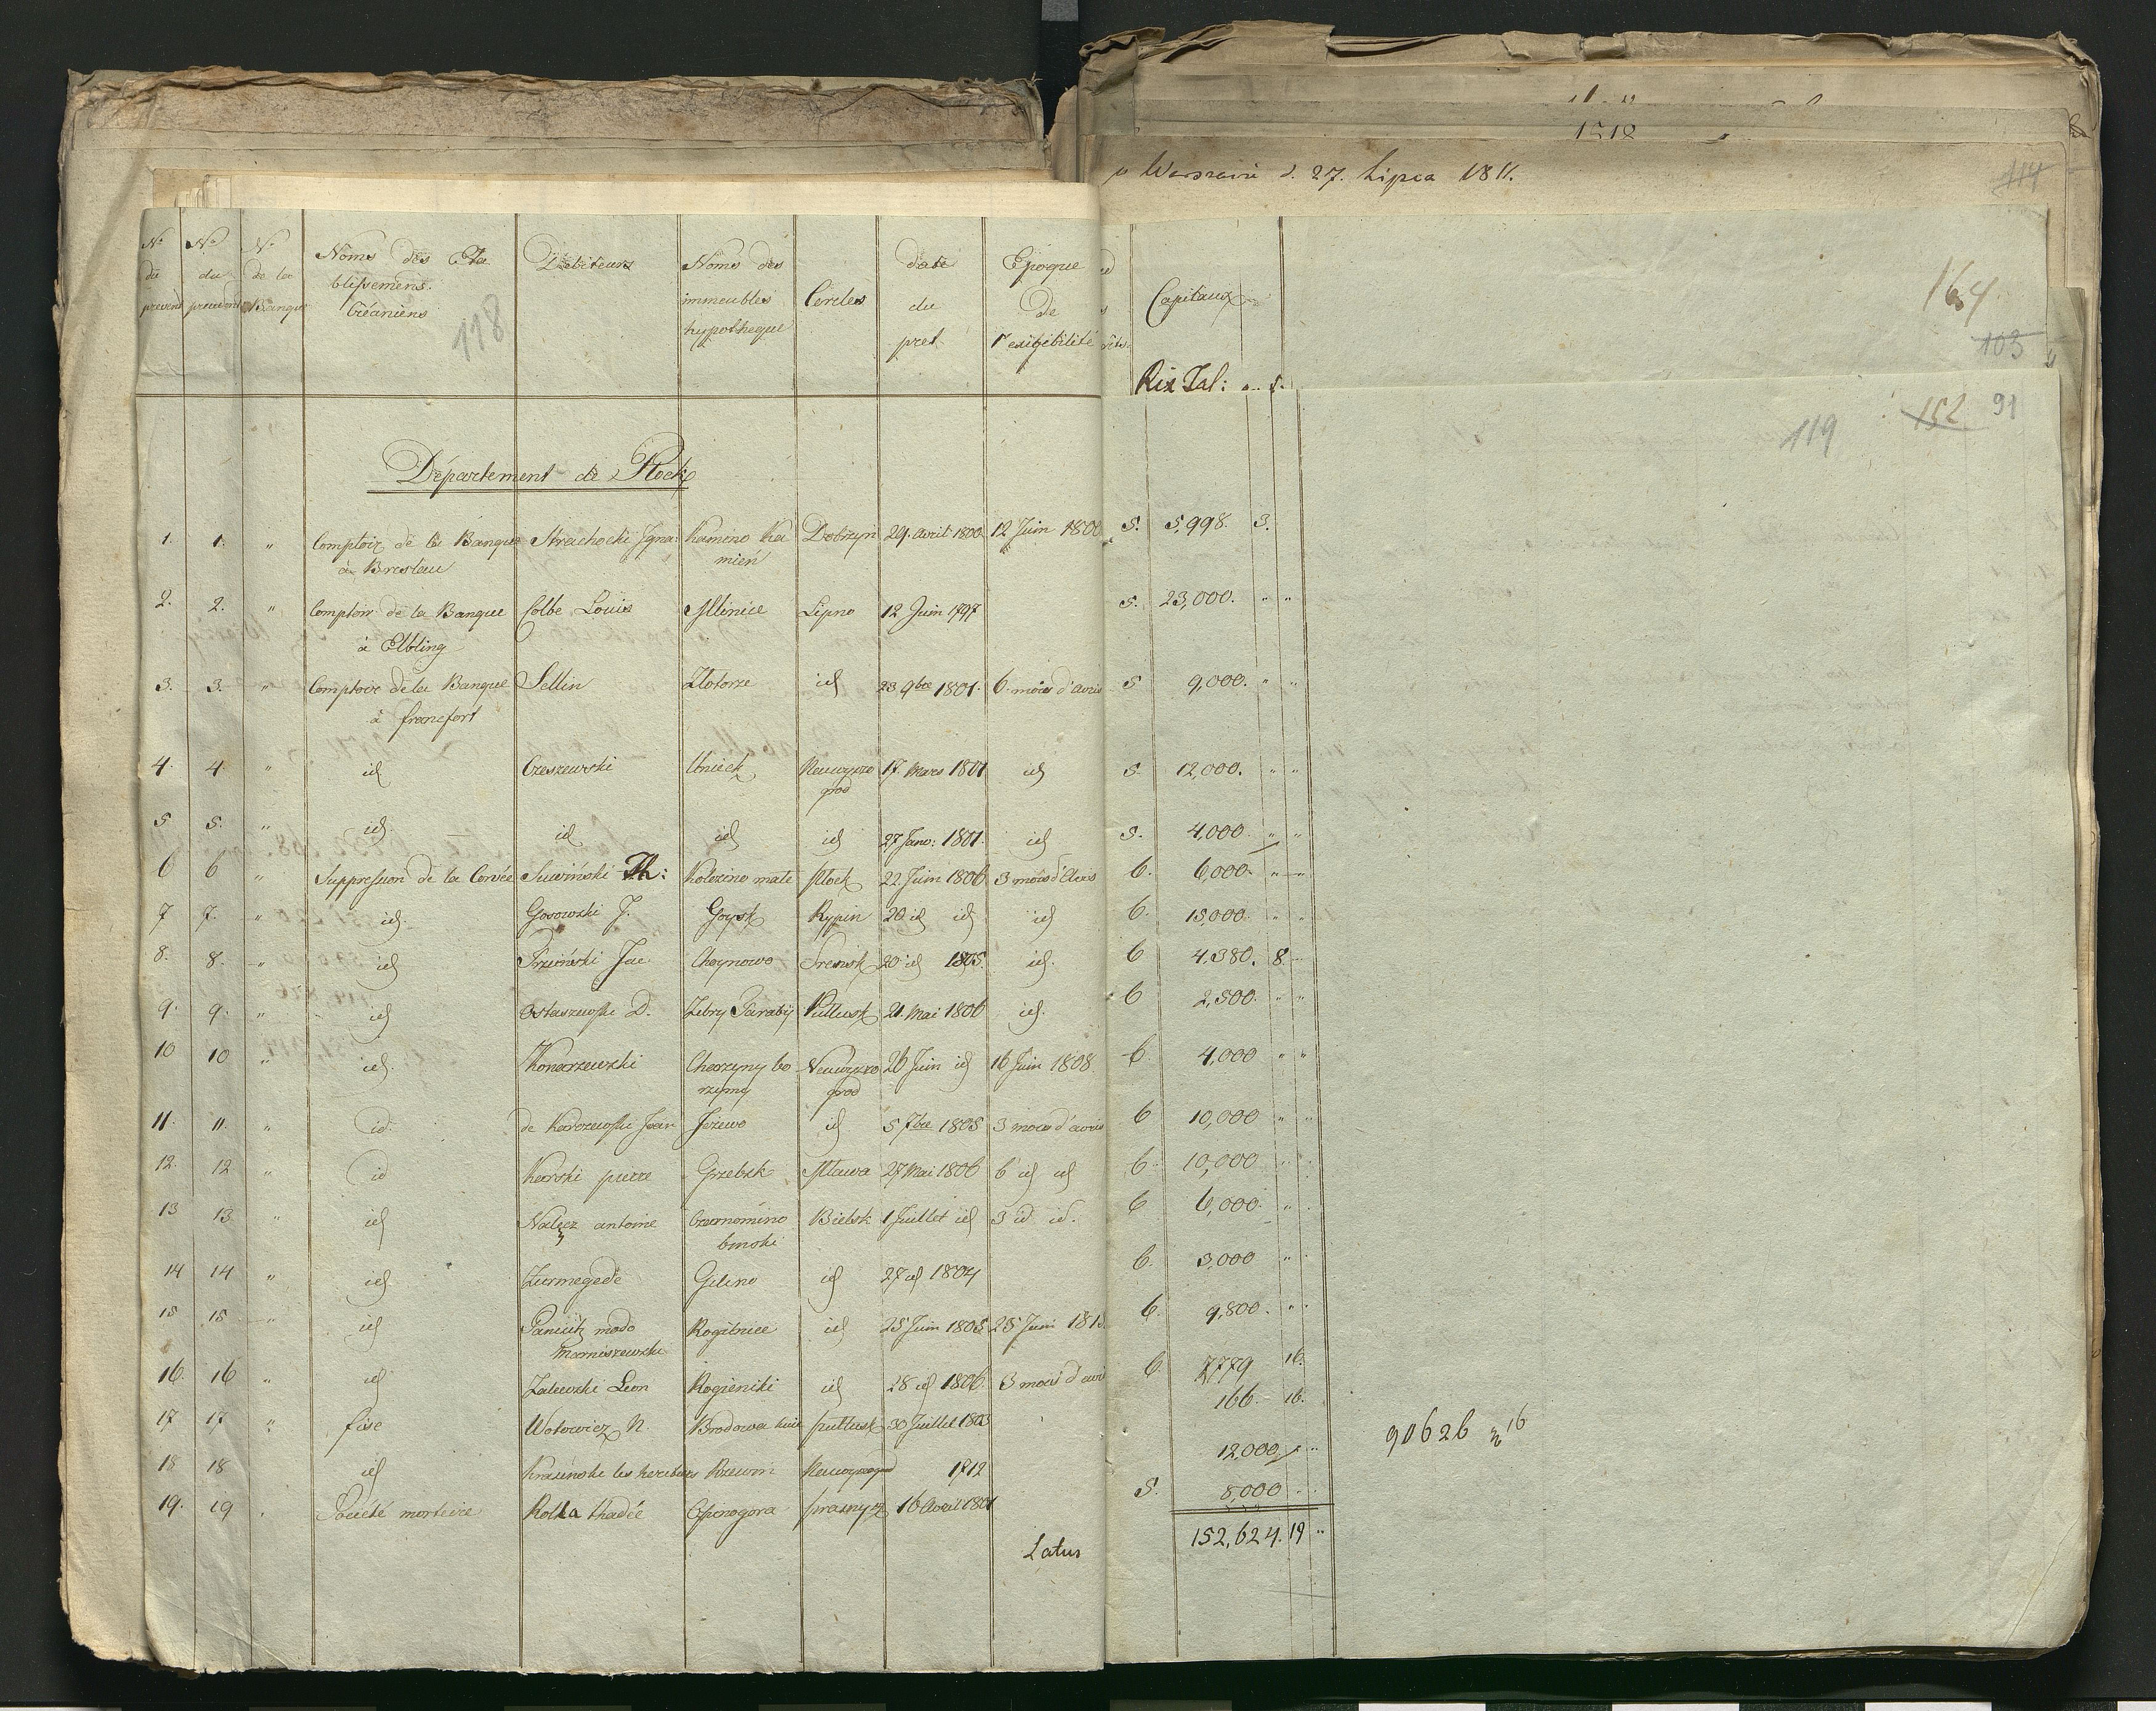 1818
w Warszawie d. 27. Lipca 1811.
114
No du present
No du precedent
No de la Banque
Noms des Eta
blissemens
Créanciers
Debiteurs
Noms des
immeubles
hypotheque
Cercles
date
du
pret
Epoque
de
l'exigibilité
Capitaux
118
164
103
Rix Tal:
152 91
119
Département de Plock
1. 1. " Comptoir de la Banque Strachocki Igna: Kamino Ka Dobrzyn 29. avril 1800. 12 Juin 1800 5. 5,998. 3.
à Breslau mień
2. 2. " Comptoir de la Banque Colbe Louis Mlinice Lipno 12 Juin 1797 5. 23,000. " "
à Elbling
3. 3. " Comptoir de la Banque Sellin Zlotorze id 23 9bre 1801. 6. mois d'avis 5 9,000. " "
à francfort
4. 4 " id Czeszewski Unieck Neuwyszo 17. Mars 1801 id 5. 12,000. " "
grod
5 5. " id. id id id 27 Janv: 1801. id 5. 4,000. " "
6 6 " Suppression de la Corvée Suwiński Th: Kolozino male Plock 22. Juin 1806 3 mois d'Avis 6. 6,000. " "
7 7. " id. Gosowski J. Goysk Rypin 20 id id id 6. 15,000. " "
8. 8. " id Trzciński Jac. Choynowo Srensk 20 id 1805. id. 6 4,380. 8. "
9. 9. " id Ostaszewski D. Zebry Paraby Pultusk 21. Mai 1806 id. 6 2,500. " "
10 10 " id. Konarzewski Chorzyny bo Neuwyszo 26 Juin id 16 Juin 1808. 6. 4,000 " "
rzymy grod
11. 11. " id. de Kadzewski Jean Jezewo id 5 7bre 1805 3 mois d'avis 6 10,000 " "
12. 12 " id Karski pierre Grzebsk Mlawa 27 Mai 1806 6 id id 6. 10,000
13 13 " id Nalęcz antoine Czarnomino Bielsk 1 Juillet id 3 id id. 6 6,000. "
binski
14 14 " id. Zurmegede Gilino id 27 id 1804 6. 3,000 "
15 15 " id Paniütz modo Rogitnice id 25 Juin 1805 25 Juin 181 6. 9,800. "
Marniszewski
16. 16 " id Zalewski Leon Rogieniki id 28 id 1806. 3 mois d'avis 6. 7,779 16.
17 17 " fisc Wotowicz N. Brodowa Pultusk 30 Juillet 1803 166. 16.
18 18 id Krasinski les heritiers Rzewin 1812 12,000 "
19. 19 Société mortuaire Kolla thadée Opinogora prasnysz 16 Avril 1801 5. 8,000
90626 16
Latus 152,624. 19 "